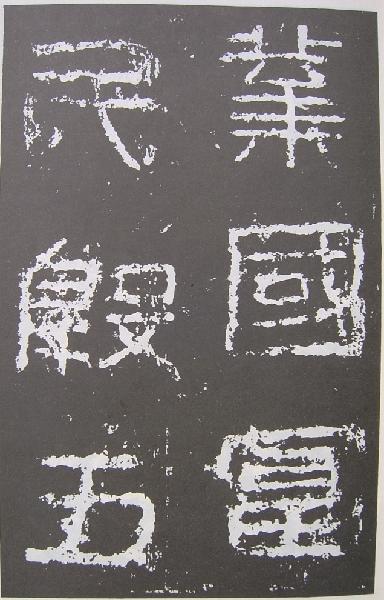 業國富
民殷五